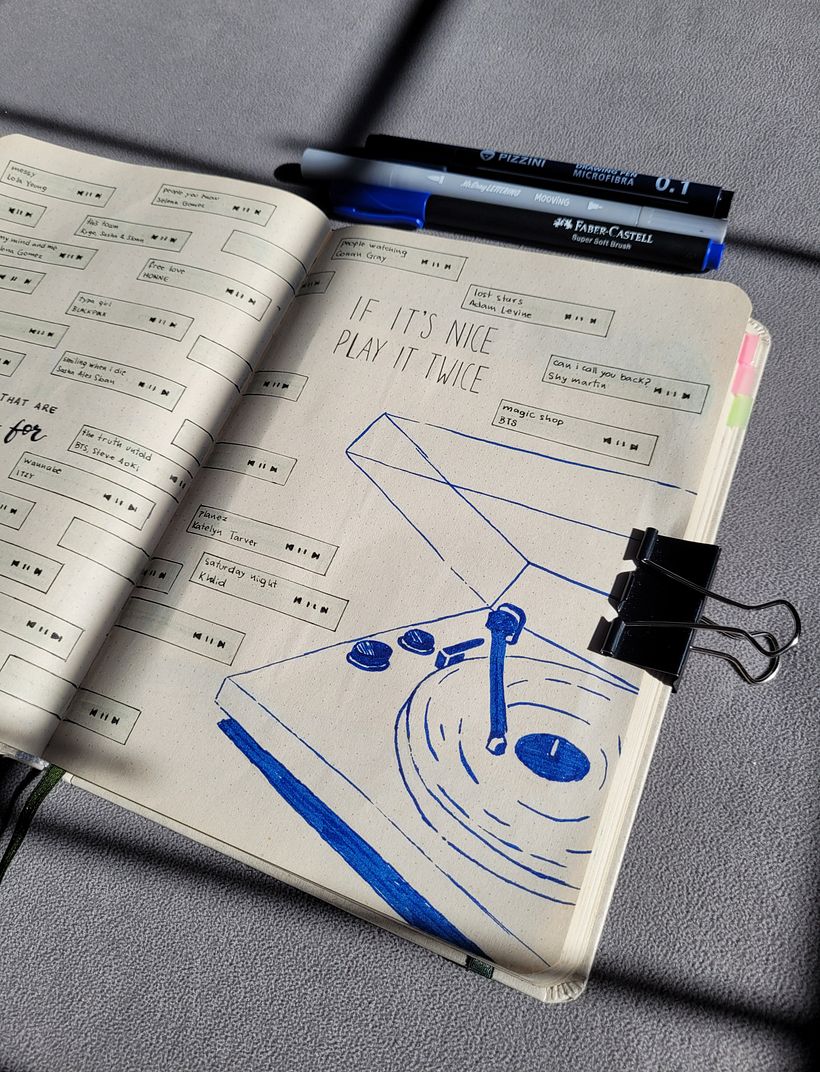 messy
Lola Young
people you know
Selena Gomez
this town
Kygo, Sasha & Sloan
my mind and me
Selena Gomez
free love
HONNE
typa girl
BLACKPINK
smiling when i die
Sasha Alex Sloan
THAT ARE
for
the truth untold
BTS, Steve Aoki
wannabe
ITZY
people watching
Conan Gray
lost stars
Adam Levine
IF IT'S NICE
PLAY IT TWICE
can i call you back?
Shy martin
magic shop
BTS
Planez
Katelyn Tarver
saturday night
Khalid
PIZZINI
DRAWING PEN
MICROFIBRA
0.1
LETTERING
MOOVING
FABER-CASTELL
Super Soft Brush